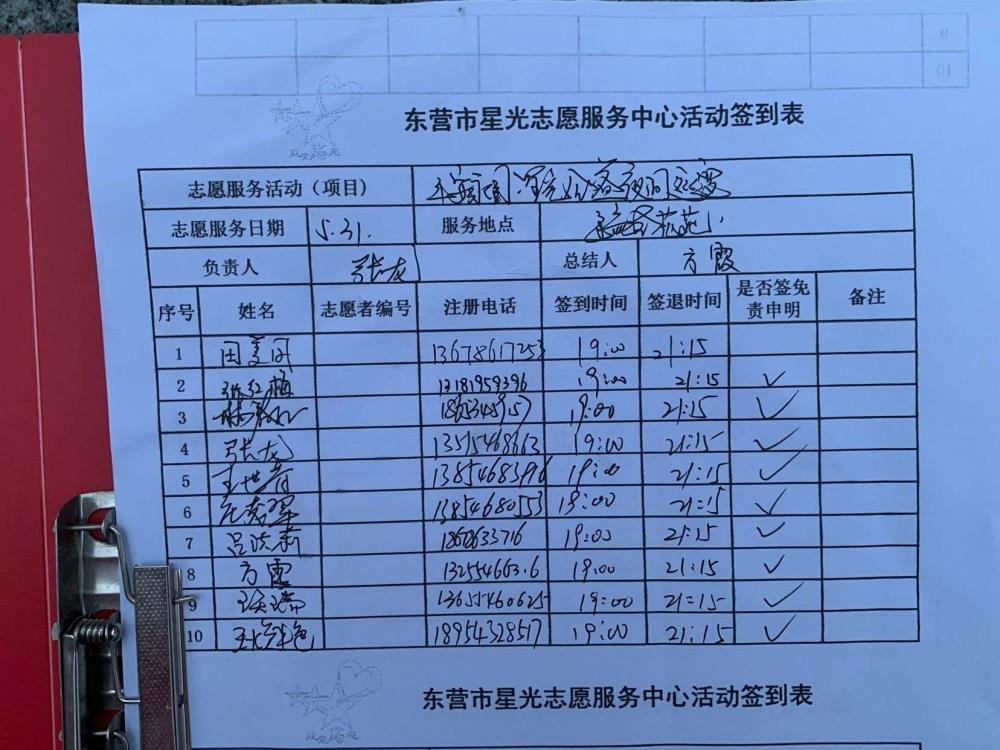 9
10
东营市星光志愿服务中心活动签到表
志愿服务活动（项目）
志愿服务日期 5.31. 服务地点
负责人 张龙 总结人 方霞
序号 姓名 志愿者编号 注册电话 签到时间 签退时间 是否签免责申明 备注
1 13678617253 19:00 21:15
2 张红梅 13181959396 19:00 21:15 ✓
3 19:00 21:15 ✓
4 张龙 13515468663 19:00 21:15 ✓
5 19:00 21:15 ✓
6 13854680553 19:00 21:15 ✓
7 1860633716 19:00 21:15 ✓
8 方霞 19:00 21:15 ✓
9 13655460625 19:00 21:15 ✓
10 18954328517 19:00 21:15 ✓
东营市星光志愿服务中心活动签到表